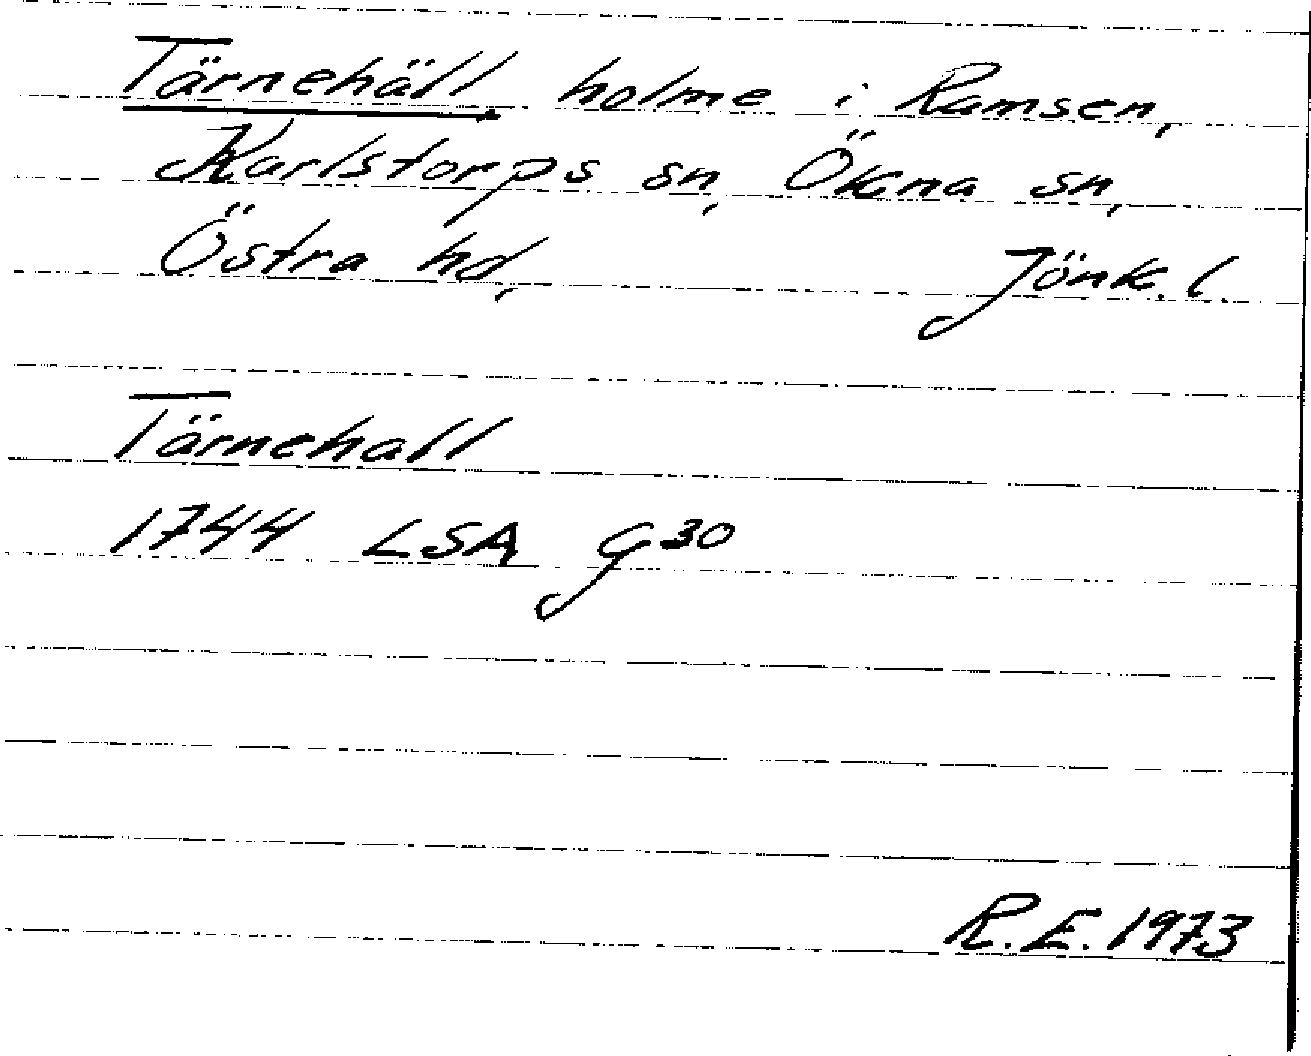 Tärnehäll, holme i Ramsen,
Karlstorps sn, Ökna sn,
Östra hd, Jönk. l.
Tärnehall
1744 LSA G30
R.E. 1973